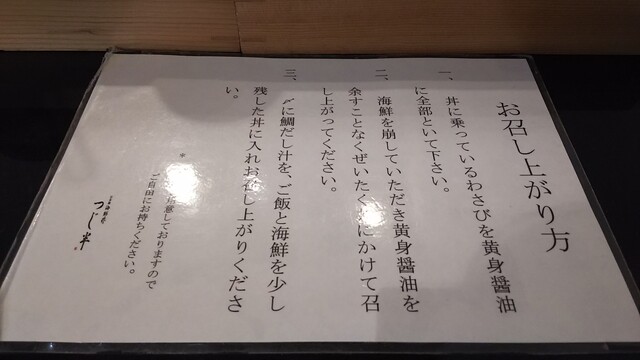 お召し上がり方
一、丼に乗っているわさびを黄身醤油
に全部といて下さい。
二、海鮮を崩していただき黄身醤油を
余すことなくぜいたく丼にかけて召
し上がってください。
三、〆に鯛だし汁を、ご飯と海鮮を少し
残した丼に入れお召し上がりくださ
い。
※ 用意しておりますので
ご自由にお持ちください。
つじ半